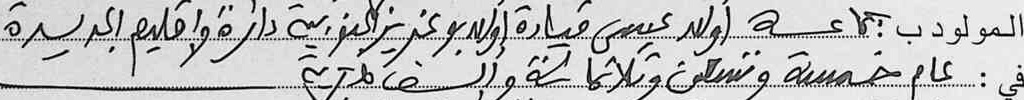 المولود ب: جماعة أولاد عيسى قيادة أولاد بوعزيز الجنوبية دائرة وإقليم الجديدة
في: عام خمسة وتسعون وثلاثمائة وألف هجرية